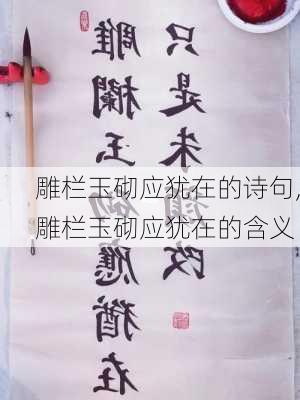 雕欄玉砌應猶在
只是朱顏改
雕栏玉砌应犹在的诗句,
雕栏玉砌应犹在的含义